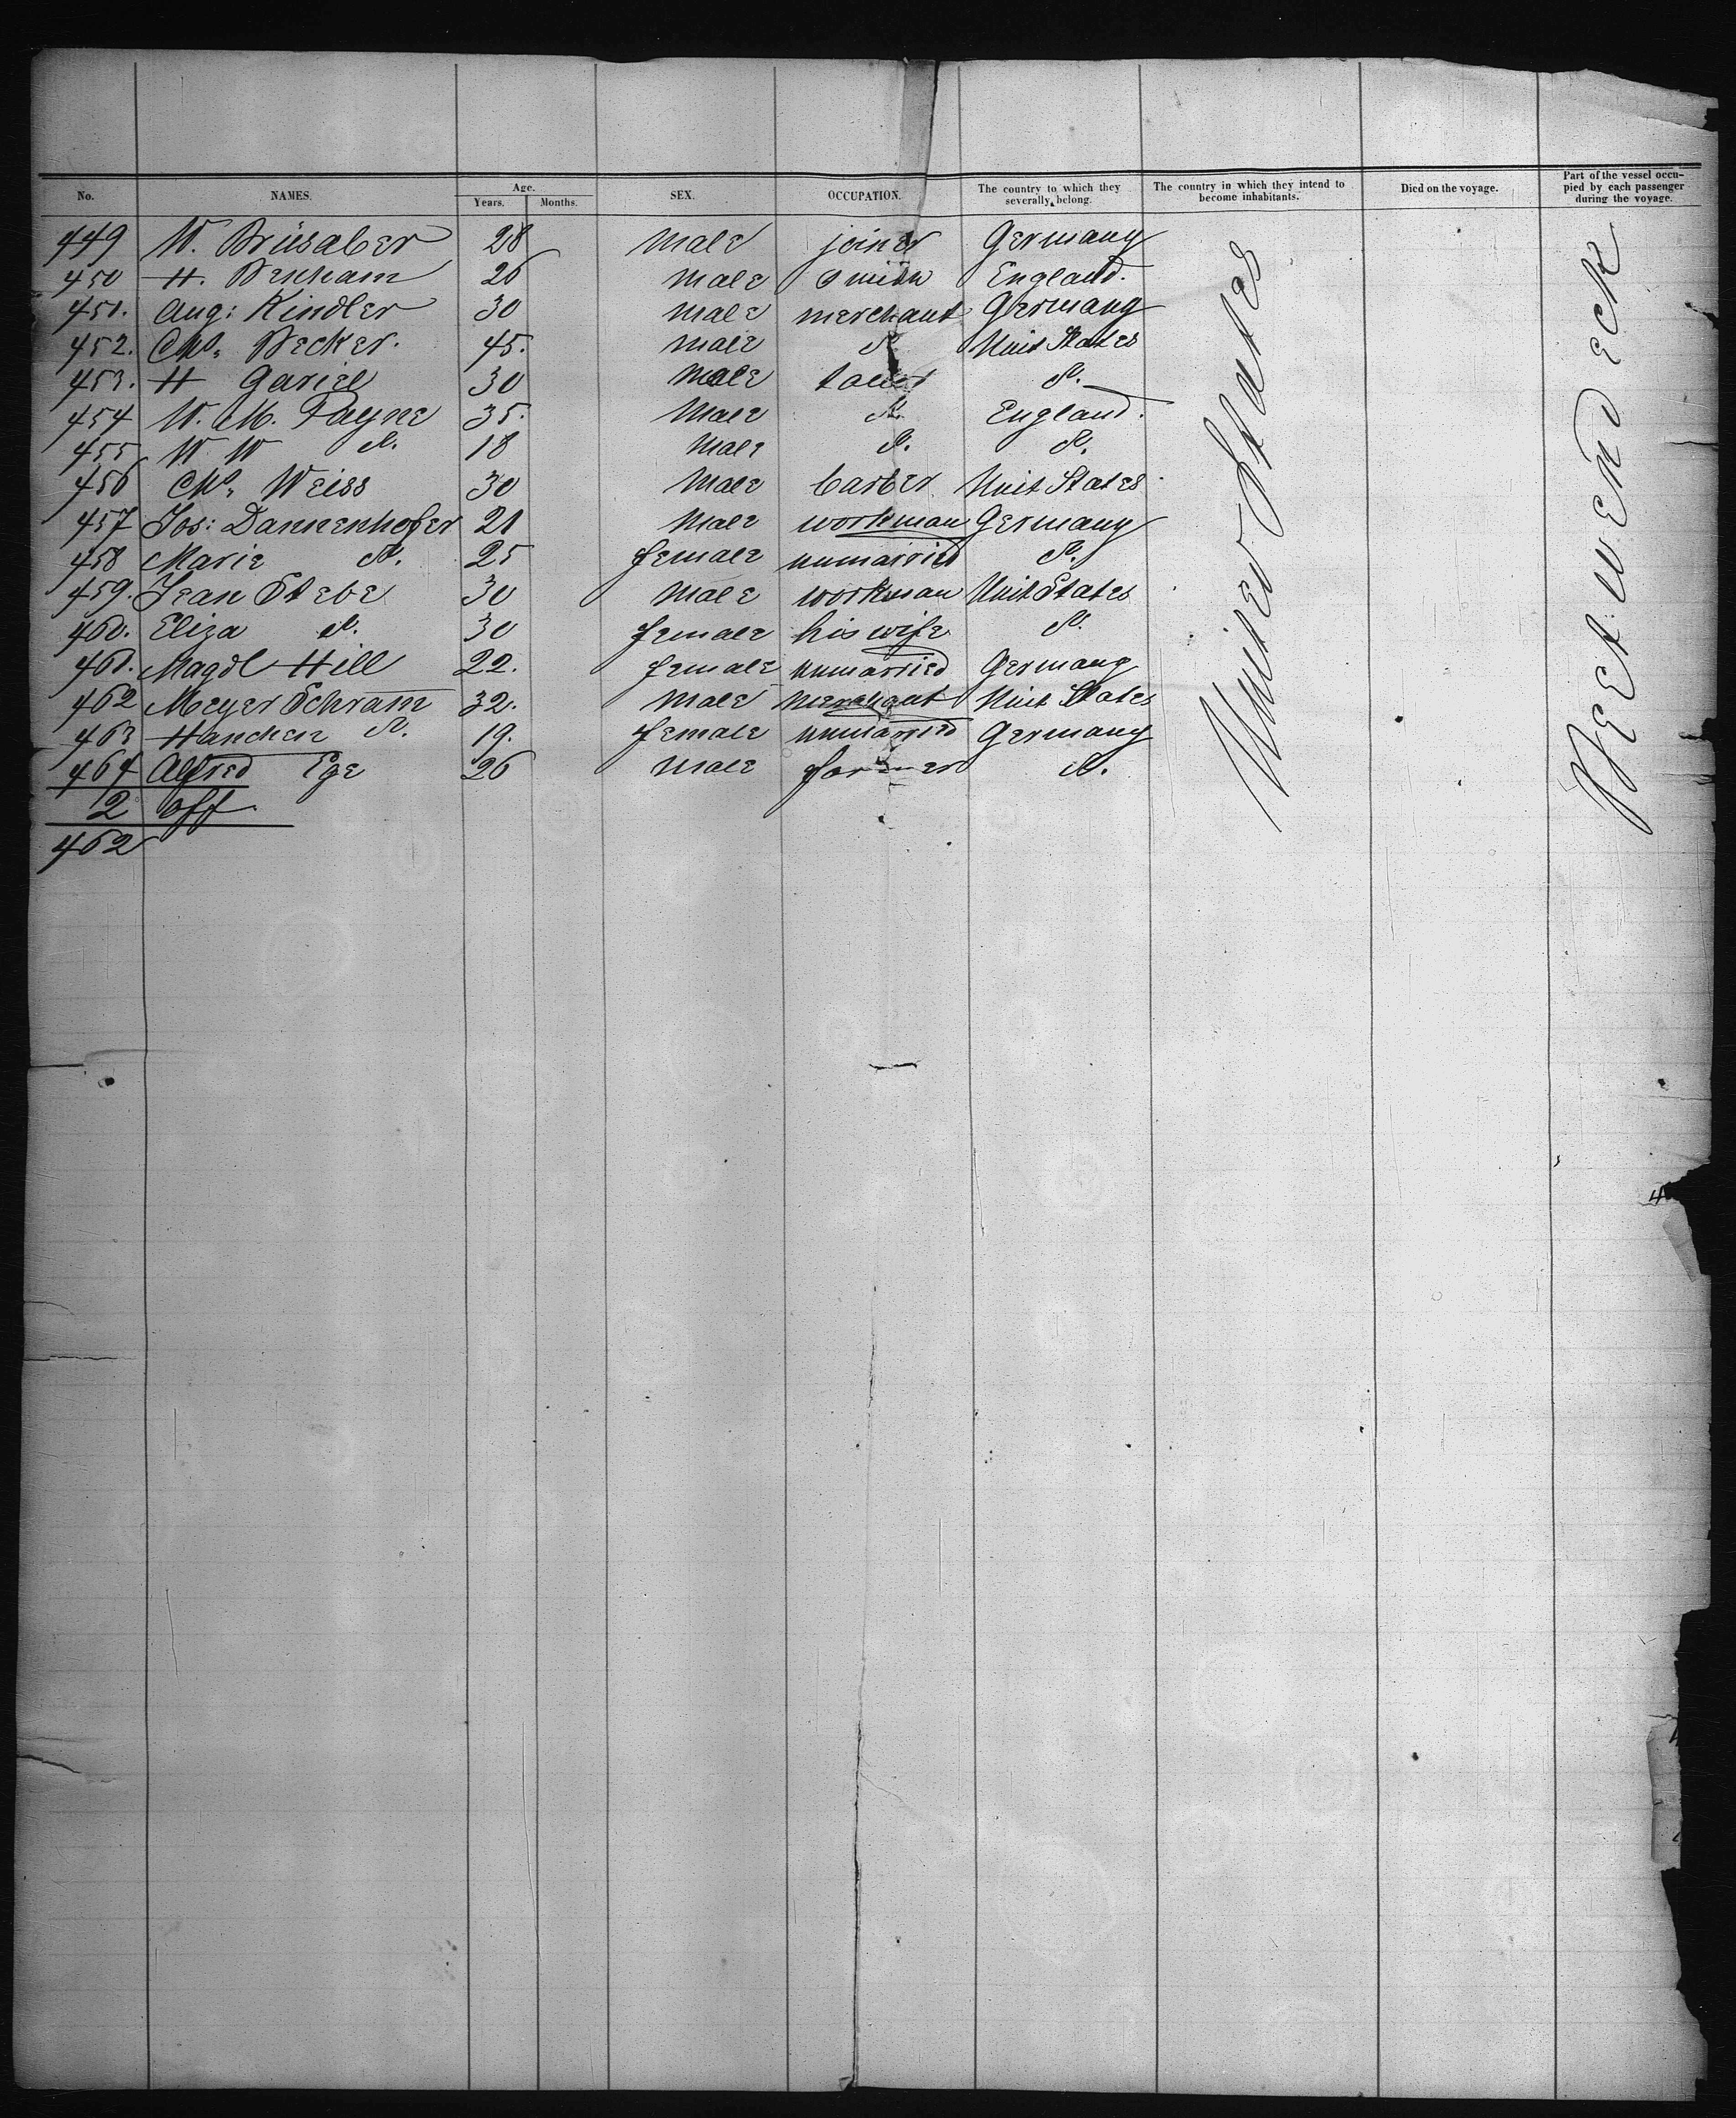 No. NAMES. Age. Years. Months. SEX. OCCUPATION. The country to which they severally belong. The country in which they intend to become inhabitants. Died on the voyage. Part of the vessel occupied by each passenger during the voyage.
449 W. Brüsaber 28 male joiner Germany
450 H. Benham 26 male smith England.
451. Aug: Kindler 30 male merchant Germany
452. Chs. Becker. 45. male d. Unit States
453. H Gariel 30 male tailor d.
454 W. M. Payne 35. male d. England.
455 W W d. 18 male d. d.
456 Chs. Weiss 30 male barber Unit States
457 Jos: Dannenhofer 21 male workman Germany
458 Marie d. 25 female unmarried d.
459. Jean Stebe 30 male workman Unit States
460. Eliza d. 30 female his wife d.
461. Magdl Hill 22. female unmarried Germany
462 Meyer Schram 32. male merchant Unit States
463 Hanchen d. 19. female unmarried Germany
464 Alfred Ege 26 male farmer d.
2 off
462
United States
Between deck